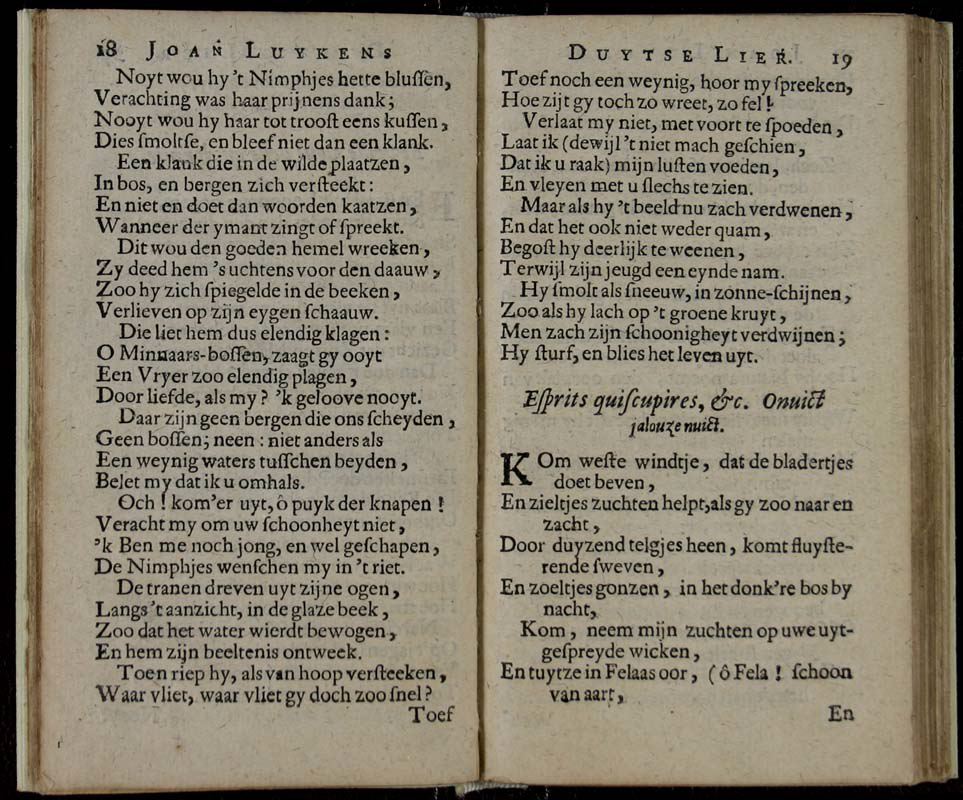 18 JOAN LUYKENS
Noyt wou hy 't Nimphjes hette blussen,
Verachting was haar prijnens dank;
Nooyt wou hy haar tot troost eens kussen,
Dies smoltse, en bleef niet dan een klank.
Een klank die in de wilde plaatzen,
In bos, en bergen zich versteekt:
En niet en doet dan woorden kaatzen,
Wanneer der ymant zingt of spreekt.
Dit wou den goeden hemel wreeken,
Zy deed hem 's uchtens voor den daauw,
Zoo hy zich spiegelde in de beeken,
Verlieven op zijn eygen schaauw.
Die liet hem dus elendig klagen:
O Minnaars-bossen, zaagt gy ooyt
Een Vryer zoo elendig plagen,
Door liefde, als my? 'k geloove nooyt.
Daar zijn geen bergen die ons scheyden,
Geen bossen; neen: niet anders als
Een weynig waters tusschen beyden,
Belet my dat ik u omhals.
Och! kom'er uyt, ô puyk der knapen!
Veracht my om uw schoonheyt niet,
'k Ben me noch jong, en wel geschapen,
De Nimphjes wenschen my in 't riet.
De tranen dreven uyt zijne ogen,
Langs 't aanzicht, in de glaze beek,
Zoo dat het water wierdt bewogen,
En hem zijn beeltenis ontweek.
Toen riep hy, als van hoop versteeken,
Waar vliet, waar vliet gy doch zoo snel?
Toef
DUYTSE LIER. 19
Toef noch een weynig, hoor my spreeken,
Hoe zijt gy toch zo wreet, zo fel!
Verlaat my niet, met voort te spoeden,
Laat ik (dewijl 't niet mach geschien,
Dat ik u raak) mijn lusten voeden,
En vleyen met u slechs te zien.
Maar als hy 't beeld nu zach verdwenen,
En dat het ook niet weder quam,
Begost hy deerlijk te weenen,
Terwijl zijn jeugd een eynde nam.
Hy smolt als sneeuw, in zonne-schijnen,
Zoo als hy lach op 't groene kruyt,
Men zach zijn schoonigheyt verdwijnen;
Hy sturf, en blies het leven uyt.
Esprits quiscupires, &c. Onuict
jalouze nuict.
KOm weste windtje, dat de bladertjes
doet beven,
En zieltjes zuchten helpt, als gy zoo naar en
zacht,
Door duyzend telgjes heen, komt fluyste-
rende sweven,
En zoeltjes gonzen, in het donk're bos by
nacht,
Kom, neem mijn zuchten op uwe uyt-
gespreyde wicken,
En tuytze in Felaas oor, (ô Fela! schoon
van aart,
En